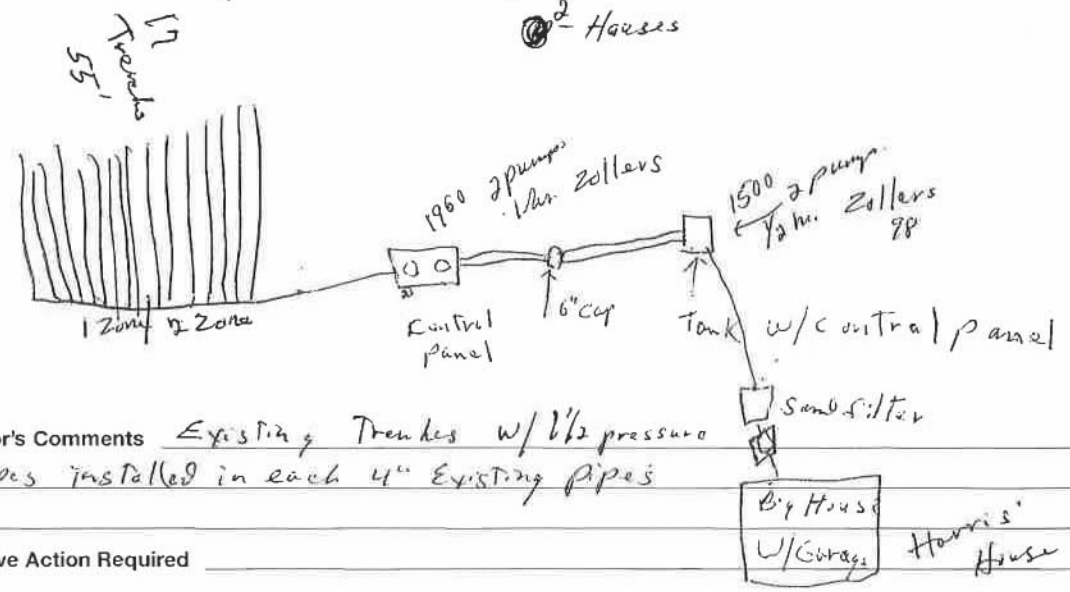 2 - Houses
17
Trenchs
55'
1960 2 pumps
1 hr. Zollers
1500 2 pump.
1/2 hr. Zollers
98
1 Zone 2 Zone
Control
panel
6" cap
Tank w/control panel
Sand filter
or's Comments Existing Trenches w/ 1 1/2 pressure
es installed in each 4" Existing Pipes
Big House
W/Garage
Harris'
House
ve Action Required